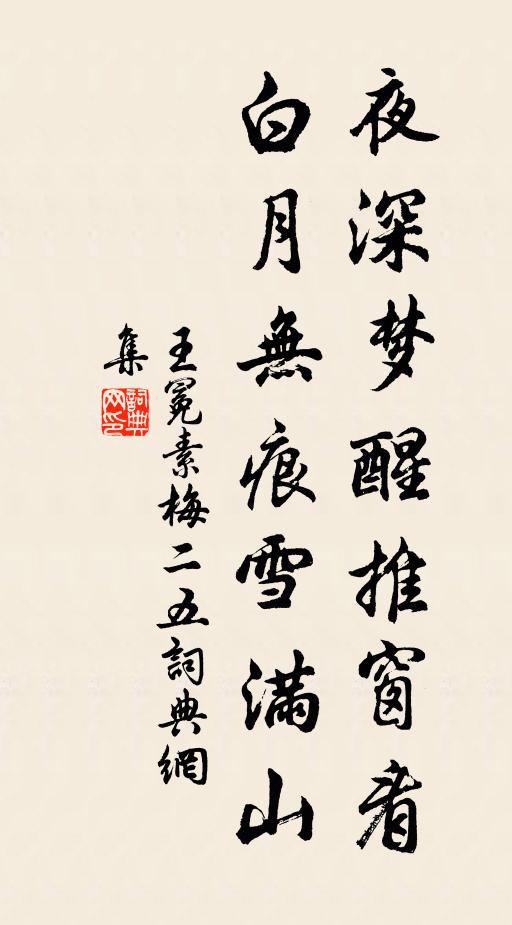 夜深梦醒推窗看
白月無痕雪滿山
王冕素梅二五詞典網
集
詞典
网印